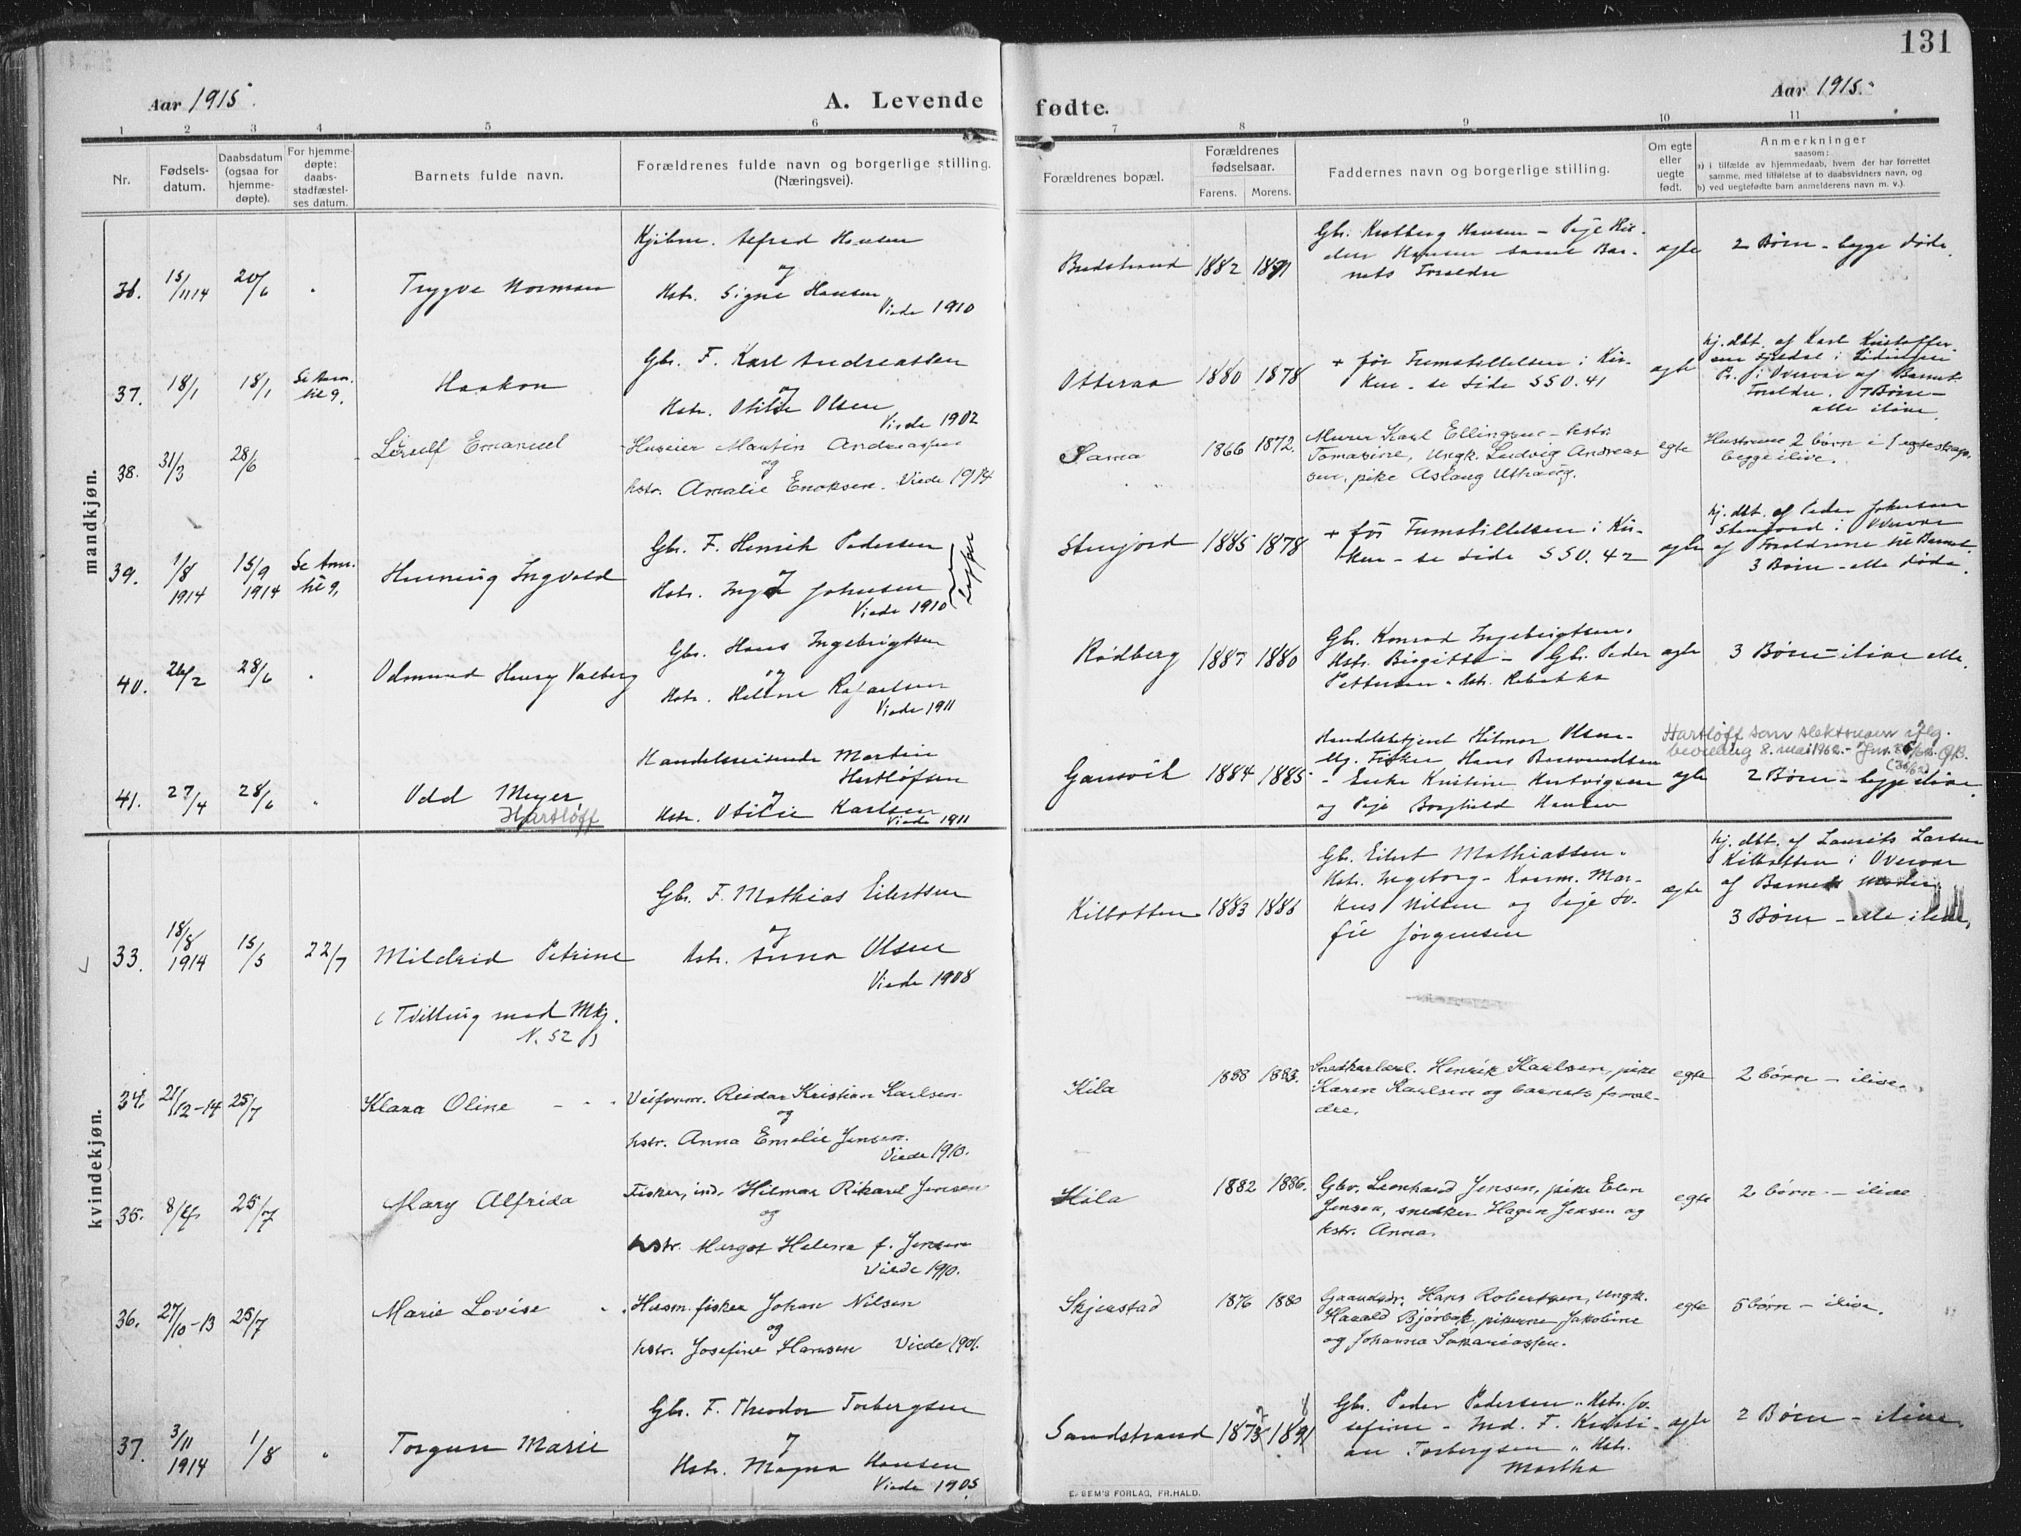 131
Aar 1915.
A. Levende fødte.
Aar 1915.
1 2 3 4 5 6 7 8 9 10 11
Nr.
Fødsels-
datum.
Daabsdatum
(ogsaa for
hjemme-
døpte).
For hjemme-
døpte:
daabs-
stadfæstel-
ses datum.
Barnets fulde navn.
Forældrenes fulde navn og borgerlige stilling.
(Næringsvei).
Forældrenes bopæl.
Forældrenes
fødselsaar.
Farens. Morens.
Faddernes navn og borgerlige stilling.
Om egte
eller
uegte
født.
Anmerkninger
saasom:
a) i tilfælde av hjemmedaab, hvem der har forrettet
samme, med tilføielse af to daabsvidners navn, og
b) ved uegtefødte barn anmelderens navn m. v.).
mandkjøn.
36. 15/11 14 20/6 " Trygve Norman
Alfred Hansen
og
Hstr. Signe Hansen
Viede 1910
1882
Hansen
Hansen samt Bar-
nets Foreldre
egte
2 Børn - begge døde.
37. 18/1 18/1 Se Anm.
til 9. Haakon
Gbr. F. Karl Andreassen
og
Hstr. Otilie Olsen
Viede 1902
Otteraa 1880 1878
+ før Fremstillelsen i Kir-
ken - se Side 550.41
egte
hj. dbt. af Karl Kristoffer-
sen
af Barnets
Foreldre. 7 Børn -
alle ilive
38. 31/3 28/6 Emanuel
Martin Andreassen
og
hstr. Amalie Enoksen. Viede 1914
Sama 1866 1872.
Murer Karl Ellingsen - hstr.
Tomasine, Ungk. Ludvig Andreas-
sen, pike Aslaug
egte
2 børn i 1 egteskap,
begge ilive.
39. 1/8 1914 15/9 1914 Se Anm.
til 9. Henning Ingvald
Gbr. F. Henrik Pedersen
og
Hstr. Inga Johnsen
Viede 1910
1885 1878
+ før Fremstillelsen i Kir-
ken - se Side 550.42
egte
hj. dbt. af Peder Johnsen
Stenjord i Overvær
af Foreldrene til Barnet.
3 Børn - alle døde.
40. 26/2 28/6 " Odmund Henry Valberg
Gbr. Hans Ingebrigtsen
og
Hstr. Helene Rafaelsen
Viede 1911
Rødberg 1887 1880
Gbr. Konrad Ingebrigtsen.
Hstr. Birgitte - Gbr. Peder
Pettersen - Hstr. Rebekka
egte
3 Børn - ilive alle.
41. 27/4 28/6 " Odd Meyer
Hartløff
Handelsreisende Martin
Hartløfsen
og
Hstr. Otilie Karlsen
Viede 1911
Gansvik 1884 1885
Handelsbetjent Hilmar Olsen
Fisker Hans
- Enke Kristine Hartvigsen
og Pige Borghild Hansen
egte
Hartløff som slektsnavn iflg.
bevilling 8. mai 1962.
2 Børn - begge ilive.
kvindekjøn.
33. 18/8 1914 15/5 22/7 Mildrid Petrine
(Tvilling med Mkj.
N. 52)
Gbr. F. Mathias Eilertsen
og
Hstr. Anna Olsen
Viede 1908
Kilbotten 1883 1886
Gbr. Eilert Mathiassen.
Hstr. Ingeborg - Mar-
kus Nilsen og Pige So-
fie Jørgensen
egte
hj. dbt. af Laurits Larsen
Kilbotten i Overvær
af Barnets
3 Børn - alle ilive.
34. 21/12-14 25/7 Klara Oline - " "
Reidar Kristian Karlsen
og
hstr. Anna Emelie Jensen.
Viede 1910.
Kila 1888 1883.
Henrik Karlsen, pike
Karen Karlsen og barnets foræl-
dre.
egte 2 børn - ilive.
35. 8/4 25/7 Mary Alfrida
Fisker, ind. Hilmar Rikard Jensen
og
hstr. Margot Helene f. Jensen
Viede 1910.
Kila 1882 1886.
Gbr. Leonhard Jensen, pike Elen
Jensen, snedker Hagen Jensen og
hstr. Anna.
egte 2 børn - ilive
36. 27/10-13 25/7 Marie Lovise " "
Husm. fisker Johan Nilsen
og
hstr. Josefine Hansen Viede 1906.
Skjerstad 1876 1880
Gaardbr. Hans Robertsen, Ungk.
Harald Bjørbæk, pikerne Jakobine
og Johanna Sakariassen.
egte 5 børn - ilive.
37. 3/11 1914 1/8 " Torgun Marie
Gbr. F. Theodor Torbergsen
og
Hstr. Magna Hansen
Viede 1905
Sandstrand 1873 1891
Gbr. Peder Pedersen " Hstr. Jo-
sefine - Md. F. Kristi-
an Torbergsen " Hstr.
Martha
egte 2 Børn - ilive.
E. SEM'S FORLAG, FR.HALD.